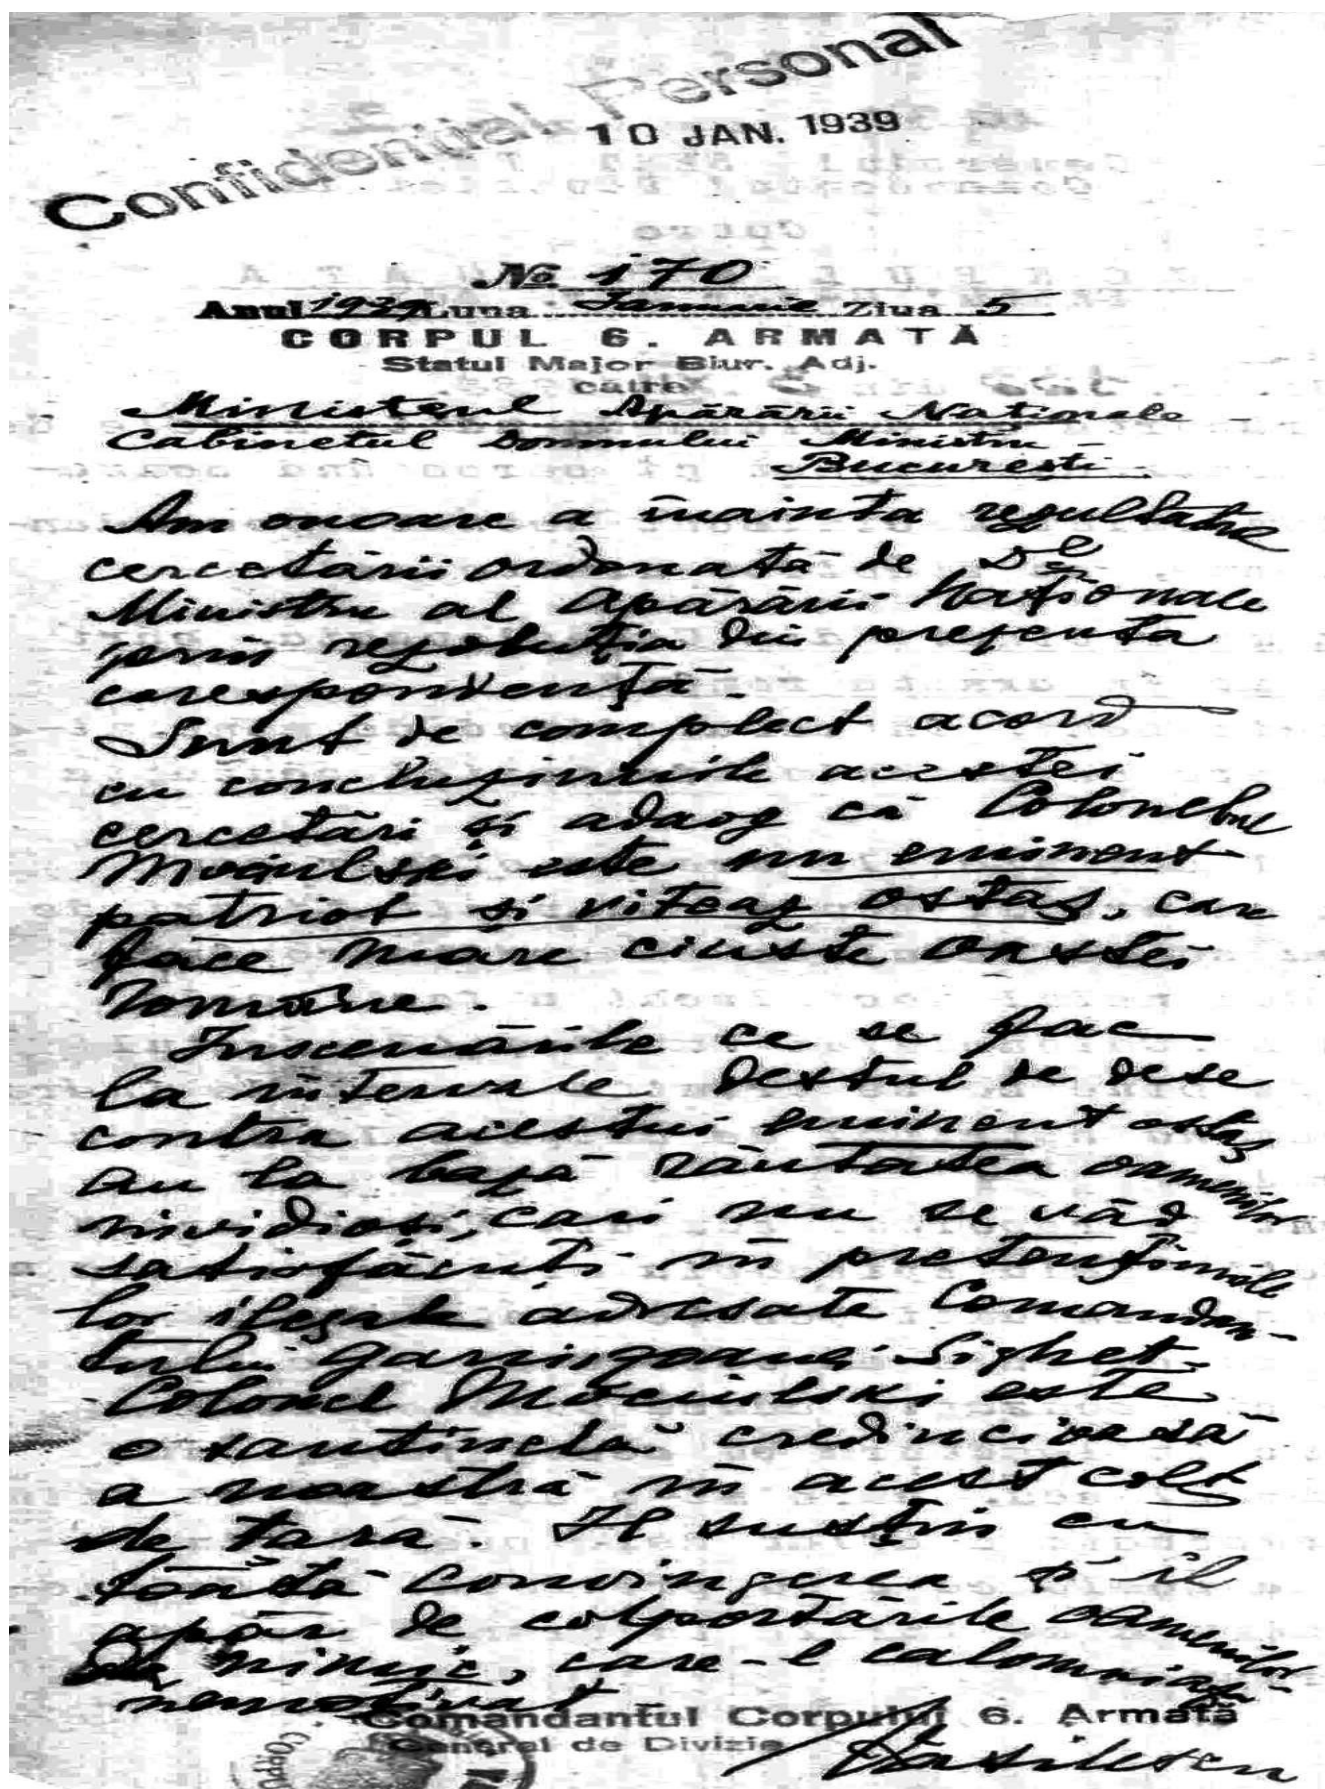 Confidențial Personal
10 JAN. 1939
No 170
Anul 1939 Luna Ianuarie Ziua 5
CORPUL 6. ARMATĂ
Statul Major Biur. Adj.
catre
Ministerul Apărării Naționale -
Cabinetul Domnului Ministru -
București -
Am onoare a înainta rezultatul
cercetării ordonată de Dl
Ministru al Apărării Naționale
prin rezoluția din prezenta
corespondență.
Sunt de complect acord
cu concluziunile acestei
cercetări și adaog că Colonelul
Mociulski este un eminent
patriot și viteaz ostaș, care
face mare cinste oastei
române.
Înscenările ce se fac
la intervale destul de dese
contra acestui eminent ostaș
au la bază răutatea oamenilor
invidioși, cari nu se văd
satisfăcuți în pretențiunile
lor ilegale adresate Comandan-
tului garnizoanei Sighet.
Colonel Mociulski este
o santinelă credincioasă
a noastră în acest colț
de țară. Il susțin cu
toată convingerea și îl
apăr de colportările oamenilor
de nimic, care-l calomniază
nemotivat
Comandantul Corpului 6. Armată
General de Divizie
Vasilescu